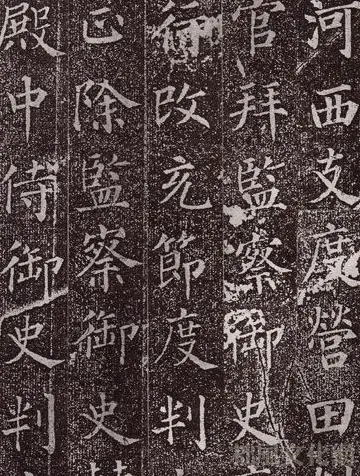 河西支度營田
官拜監察御史
行改充節度判
正除監察御史
殿中侍御史判